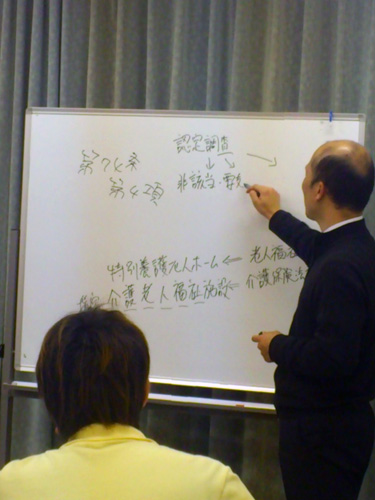 第74条
第42項
認定調査
↓ ↘ →
非該当・要支
特別養護老人ホーム ⇐ 老人福祉
介護老人福祉施設 ⇐ 介護保険法